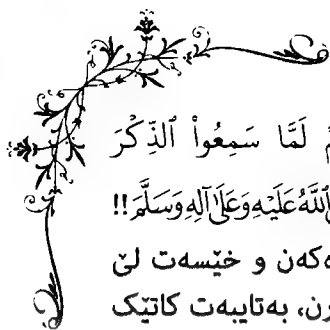 لَمَّا سَمِعُوا۟ ٱلذِّكْرَ
ٱللَّهُ عَلَيْهِ وَعَلَىٰ آلِهِ وَسَلَّمَ!!
و خێسەت لێ
بەتایبەت کاتێک